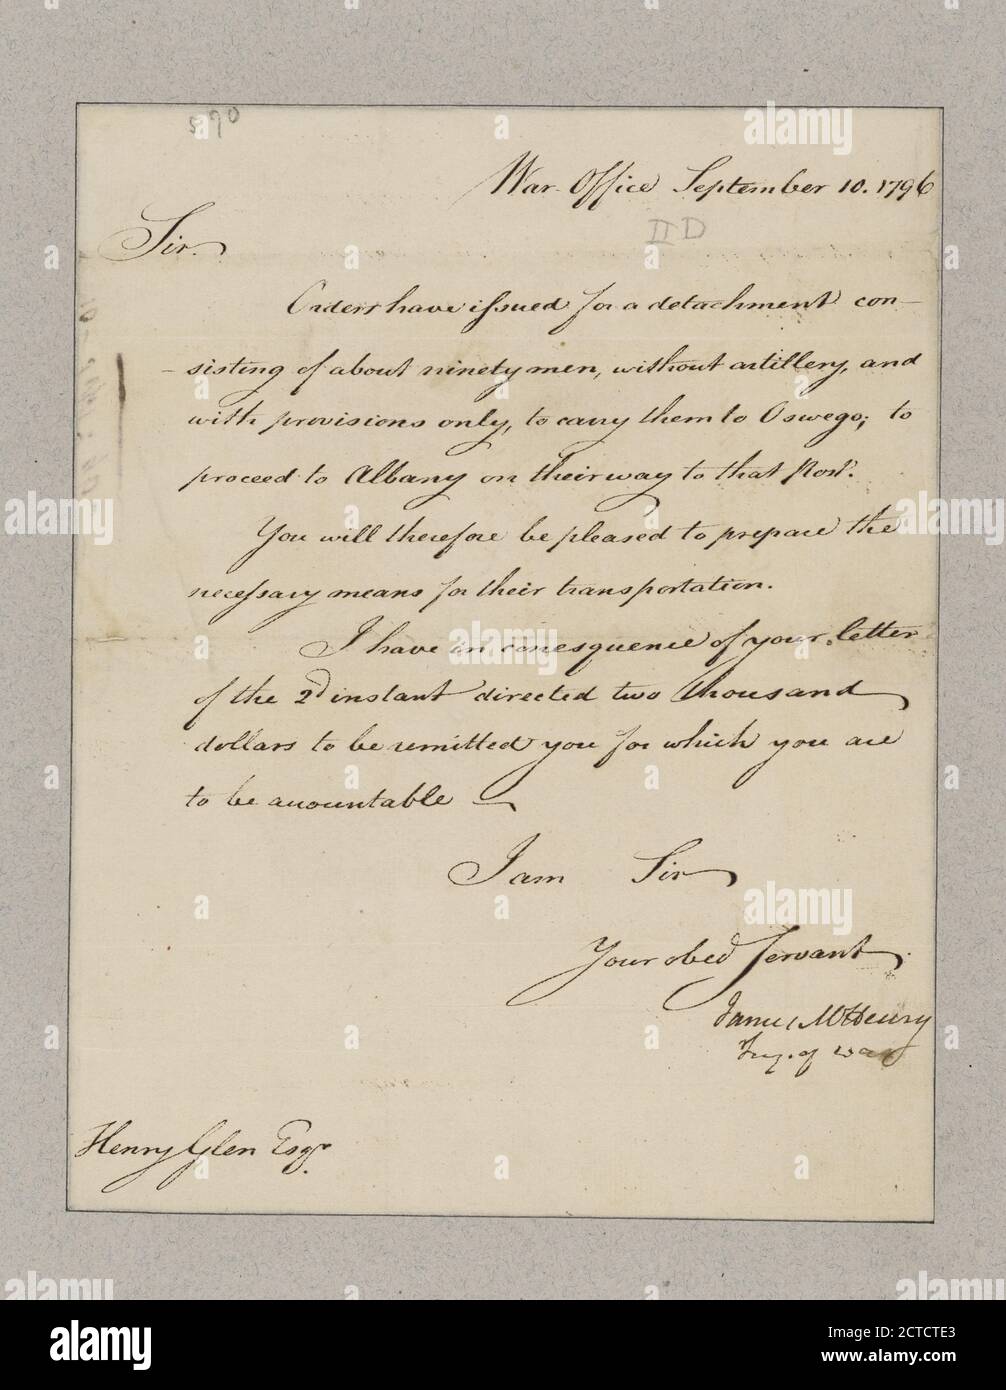 570
War Office September 10. 1796
II D
Sir.
Orders have issued for a detachment con-
-sisting of about ninety men, without artillery, and
with provisions only, to carry them to Oswego; to
proceed to Albany on their way to that Post.
You will therefore be pleased to prepare the
necessary means for their transportation.
I have in consequence of your letter
of the 2d instant directed two thousand
dollars to be remitted you for which you are
to be accountable
I am Sir
Your obed Servant.
James McHenry
Secy. of war
Henry Glen Esqr
alamy
a
alamy
Image ID: 2CTCTE3
www.alamy.com